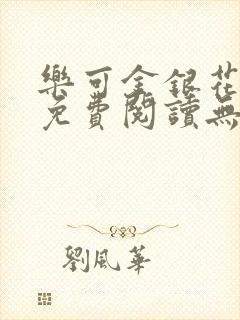 樂可金銀花
免費閱讀無
劉風華